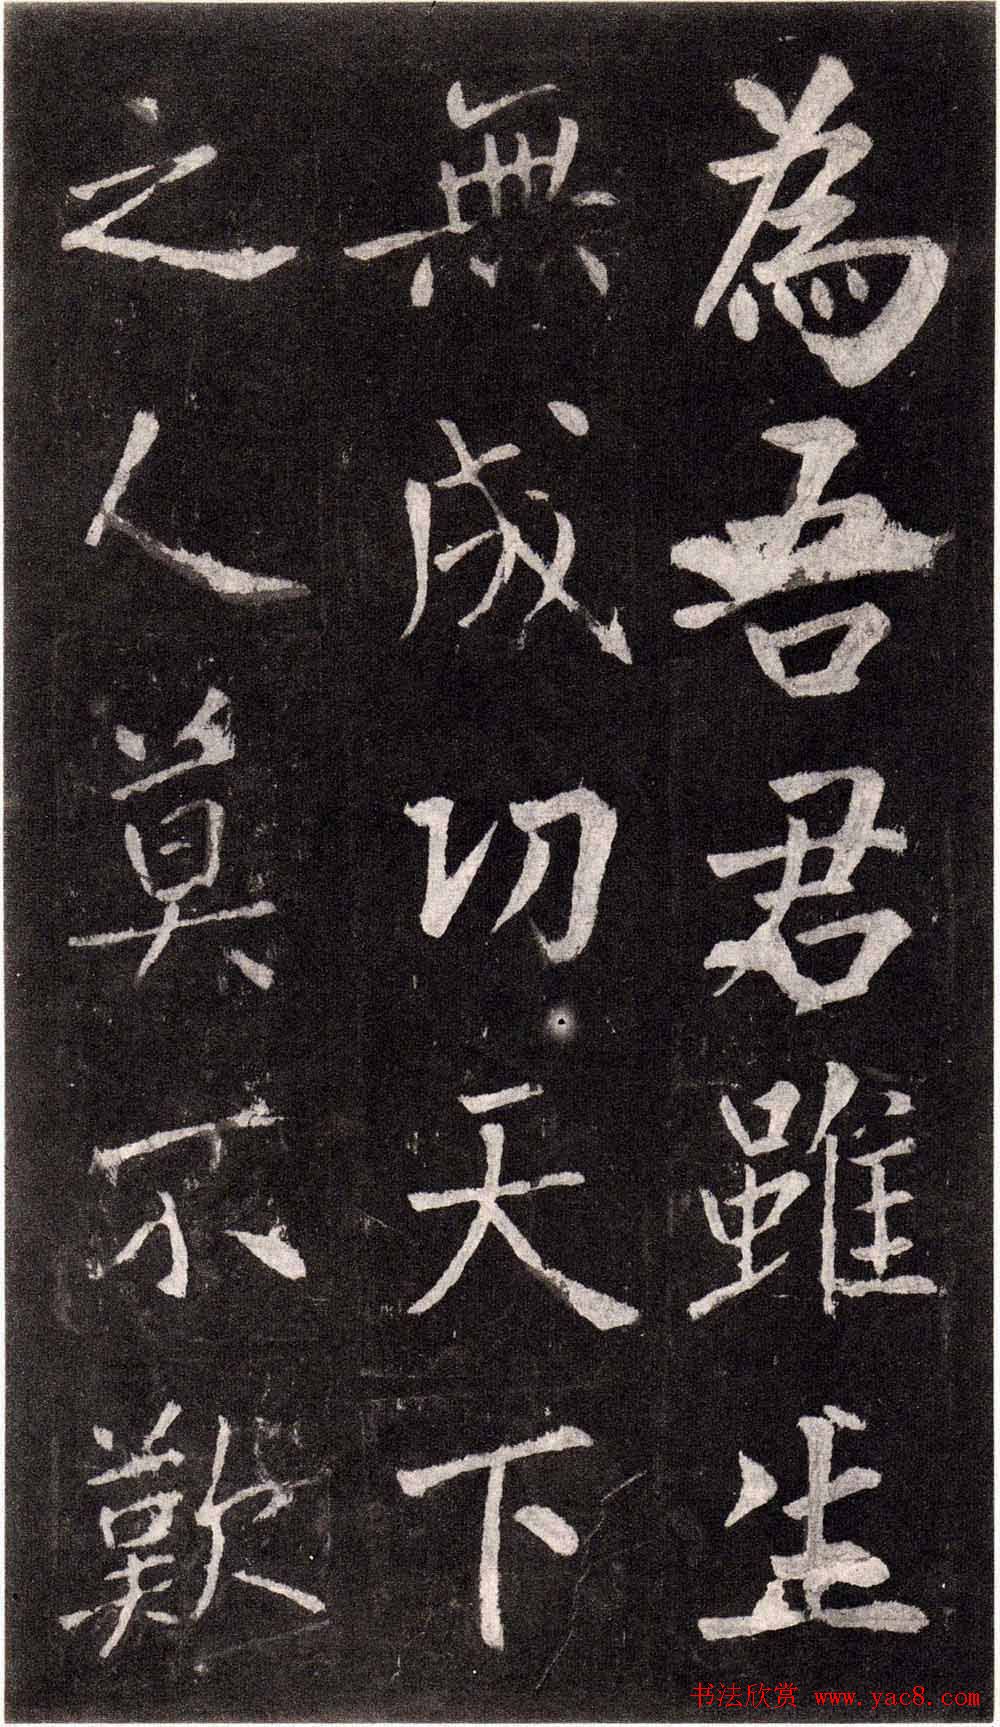 為吾君雖生
無成功天下
之人莫不歎
书法欣赏 www.yac8.com